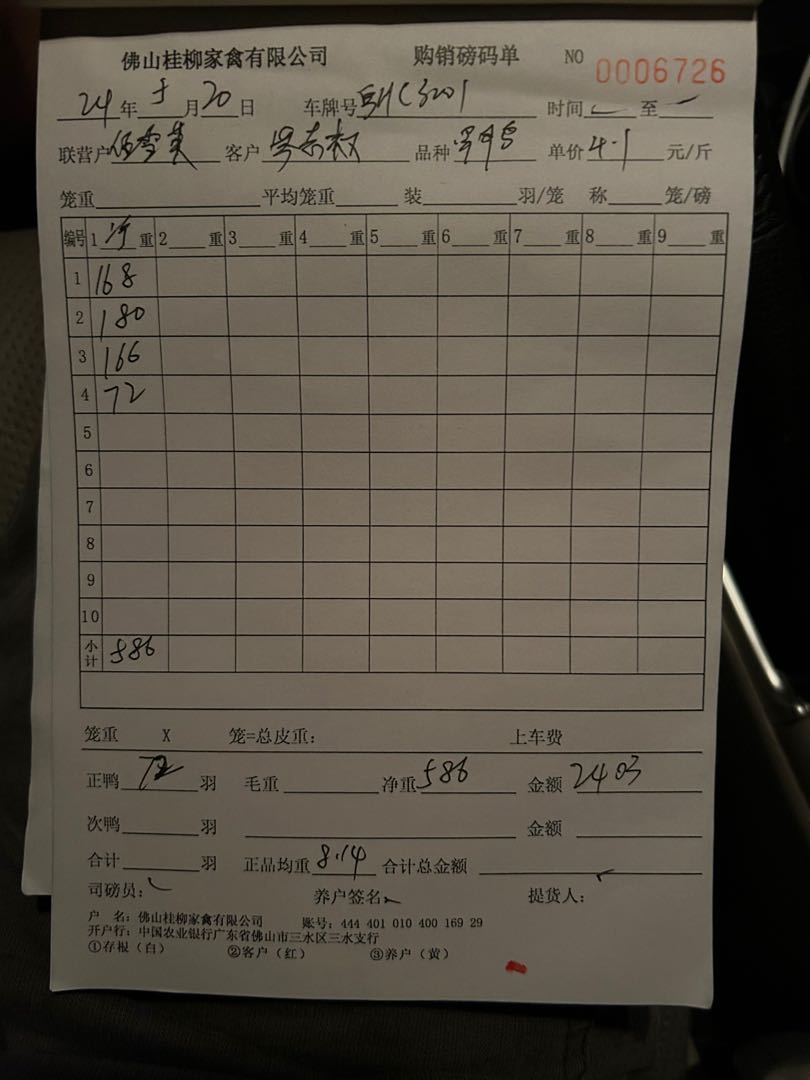 佛山桂柳家禽有限公司 购销磅码单 NO 0006726
24年5月20日 车牌号 时间 至
联营户 客户 品种 单价4.1元/斤
笼重 平均笼重 装 羽/笼 称 笼/磅
编号 1净重 2 重 3 重 4 重 5 重 6 重 7 重 8 重 9 重
1 168
2 180
3 166
4 72
5
6
7
8
9
10
小计 586
笼重 X 笼=总皮重： 上车费
正鸭72羽 毛重 净重586 金额2403
次鸭 羽 金额
合计 羽 正品均重8.14 合计总金额
司磅员： 养户签名 提货人：
户 名：佛山桂柳家禽有限公司 账号：444 401 010 400 169 29
开户行：中国农业银行广东省佛山市三水区三水支行
①存根（白） ②客户（红） ③养户（黄）